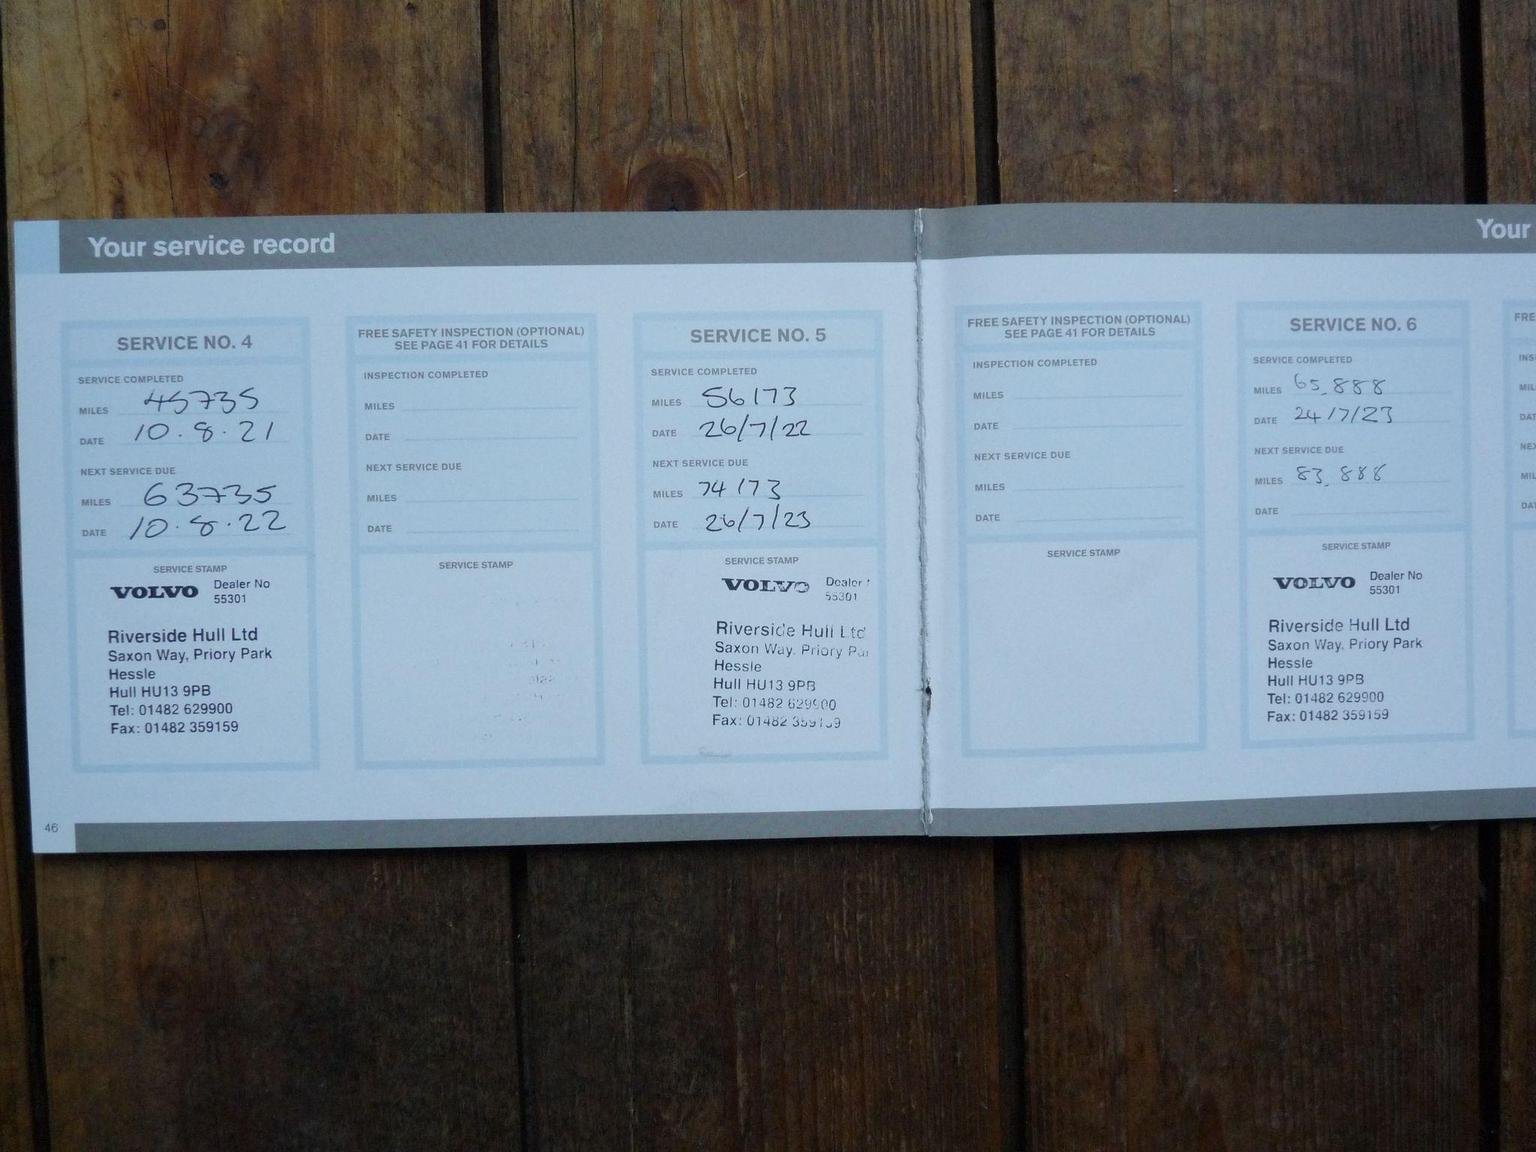 Your service record
SERVICE NO. 4
SERVICE COMPLETED
MILES 45735
DATE 10.8.21
NEXT SERVICE DUE
MILES 63735
DATE 10.8.22
SERVICE STAMP
VOLVO Dealer No
55301
Riverside Hull Ltd
Saxon Way, Priory Park
Hessle
Hull HU13 9PB
Tel: 01482 629900
Fax: 01482 359159
FREE SAFETY INSPECTION (OPTIONAL)
SEE PAGE 41 FOR DETAILS
INSPECTION COMPLETED
MILES
DATE
NEXT SERVICE DUE
MILES
DATE
SERVICE STAMP
SERVICE NO. 5
SERVICE COMPLETED
MILES 56173
DATE 26/7/22
NEXT SERVICE DUE
MILES 74173
DATE 26/7/23
SERVICE STAMP
VOLVO Dealer
55301
Riverside Hull Ltd
Saxon Way, Priory
Hessle
Hull HU13 9PB
Tel: 01482 629900
Fax: 01482 359159
46
Your
FREE SAFETY INSPECTION (OPTIONAL)
SEE PAGE 41 FOR DETAILS
INSPECTION COMPLETED
MILES
DATE
NEXT SERVICE DUE
MILES
DATE
SERVICE STAMP
SERVICE NO. 6
SERVICE COMPLETED
MILES 65,888
DATE 24/7/23
NEXT SERVICE DUE
MILES 83,888
DATE
SERVICE STAMP
VOLVO Dealer No
55301
Riverside Hull Ltd
Saxon Way, Priory Park
Hessle
Hull HU13 9PB
Tel: 01482 629900
Fax: 01482 359159